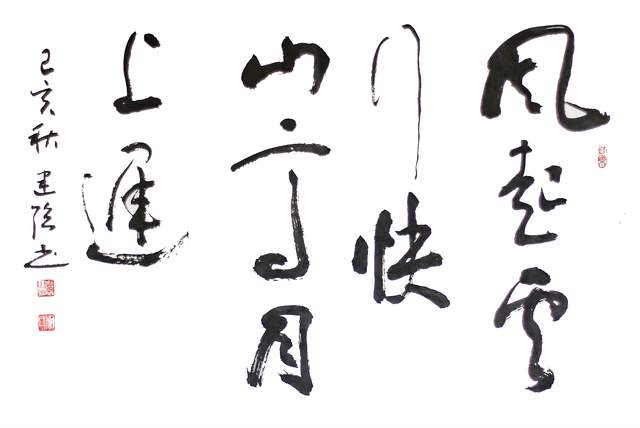 風起雲
行快
山高月
上遲
己亥秋建書